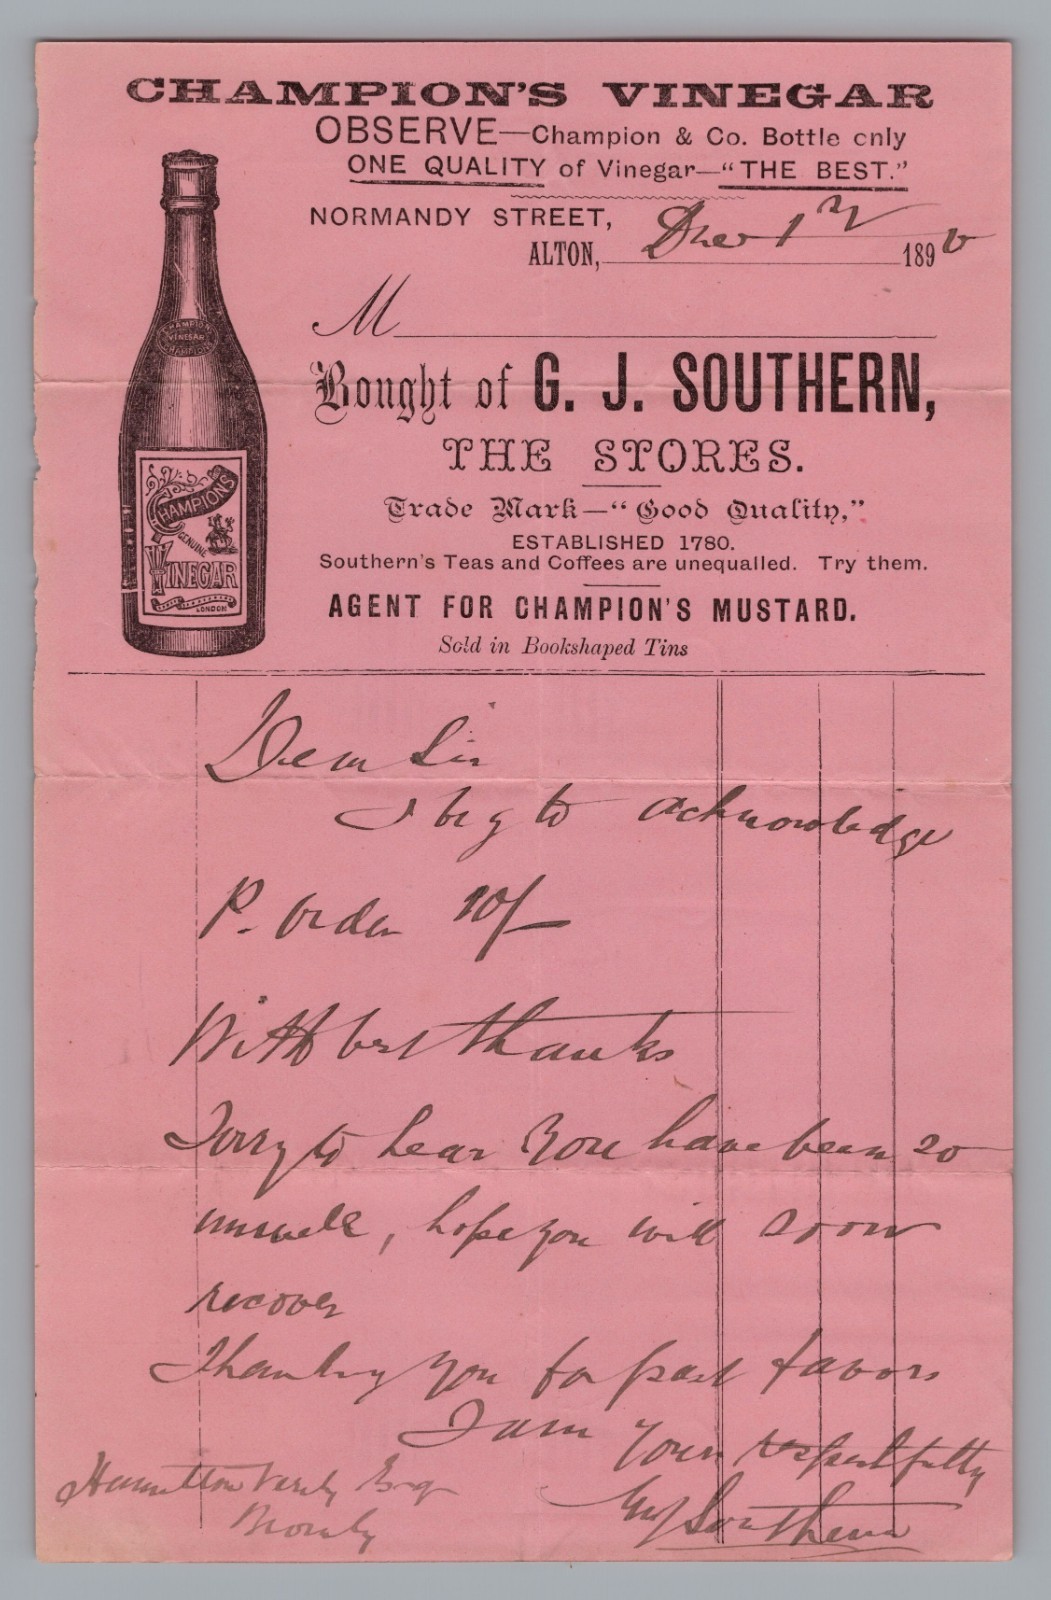 CHAMPION'S VINEGAR
OBSERVE—Champion & Co. Bottle only
ONE QUALITY of Vinegar—"THE BEST."
NORMANDY STREET,
ALTON, 1 189
M
CHAMPION
VINEGAR
CHAMPION
Bought of G. J. SOUTHERN,
THE STORES.
CHAMPION'S
GENUINE
VINEGAR
LONDON
Trade Mark—"Good Quality,"
ESTABLISHED 1780.
Southern's Teas and Coffees are unequalled. Try them.
AGENT FOR CHAMPION'S MUSTARD.
Sold in Bookshaped Tins
Dear Sir
I beg to acknowledge
P. Order 10/-
With best thanks
Sorry to hear you have been so
unwell, hope you will soon
recover
Thanking you for past favors
I am
Your respectfully
Southern
Esq